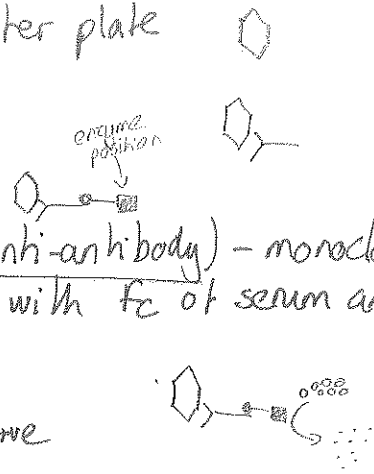 ter plate
enzyme
position
nti-antibody) - monocl
with Fc of serum a
rve